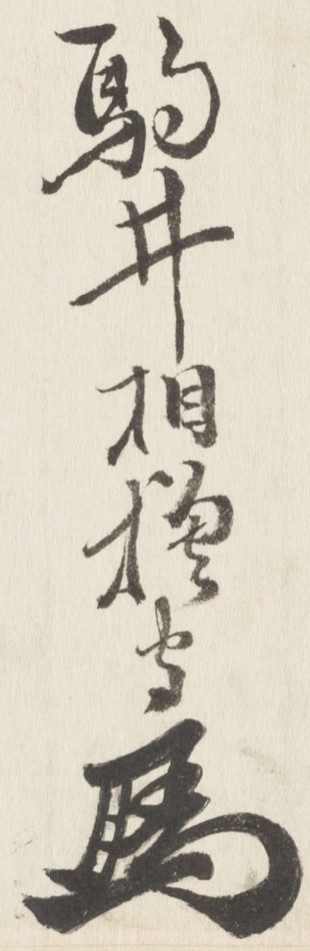 駒井相模守馬